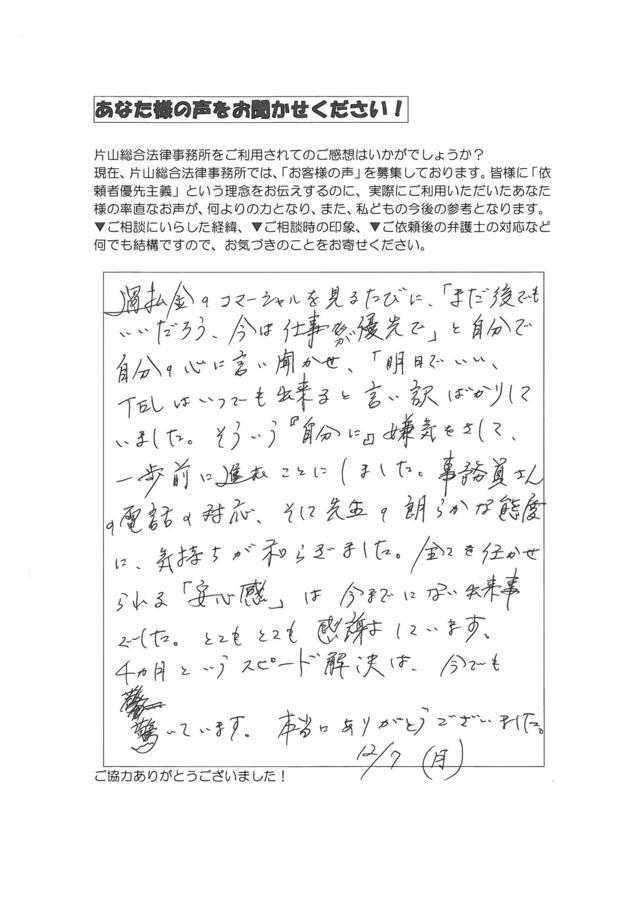 あなた様の声をお聞かせください！
片山総合法律事務所をご利用されてのご感想はいかがでしょうか？
現在、片山総合法律事務所では、「お客様の声」を募集しております。皆様に「依
頼者優先主義」という理念をお伝えするのに、実際にご利用いただいたあなた
様の率直なお声が、何よりの力となり、また、私どもの今後の参考となります。
▼ご相談にいらした経緯、▼ご相談時の印象、▼ご依頼後の弁護士の対応など
何でも結構ですので、お気づきのことをお寄せください。
過払金のコマーシャルを見るたびに、「まだ後でも
いいだろう、今は仕事が優先で」と自分で
自分の心に言い聞かせ、「明日でいい、
TELはいつでも出来ると言い訳ばかりして
いました。そういう『自分に』嫌気をさして、
一歩前に進むことにしました。事務員さん
の電話の対応、そして先生の朗らかな態度
に、気持ちが和らぎました。全てを任かせ
られる「安心感」は今までにない出来事
でした。とてもとても感謝しています。
4カ月というスピード解決は、今でも
驚いています。本当にありがとうございました。
12/7(月)
ご協力ありがとうございました！